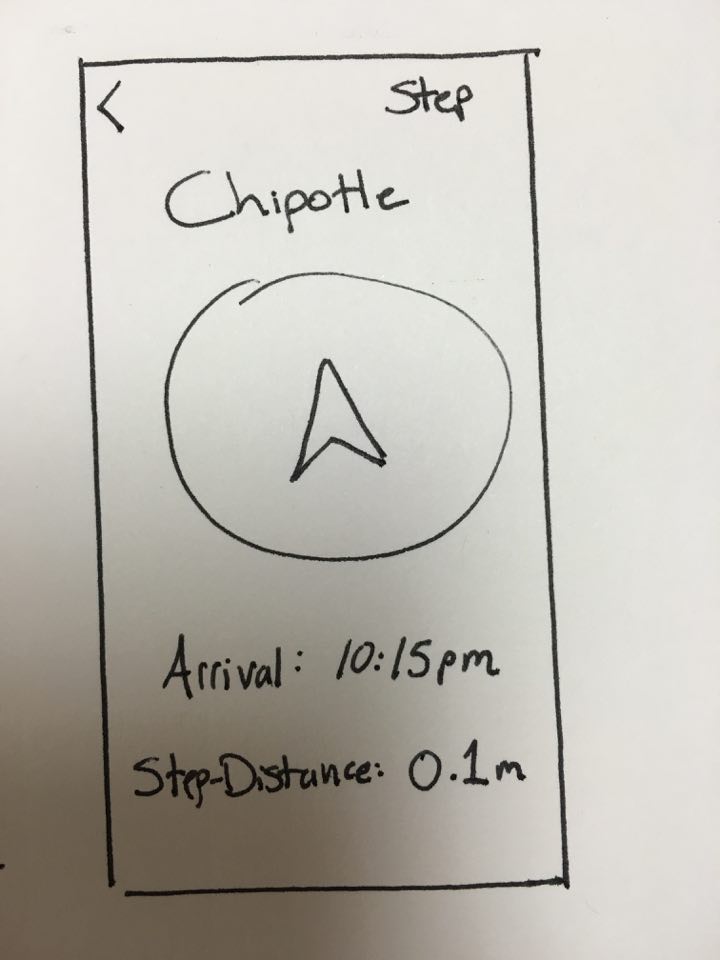 < Step
Chipotle
Arrival: 10:15pm
Step-Distance: 0.1m